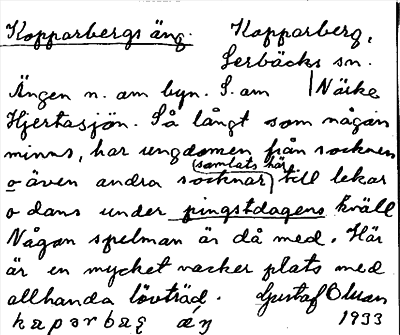 Kopparbergs äng. Kopparberg,
Lerbäcks sn.
Ängen n. om byn. S. om | Närke
Hjertasjön. Så långt som någon
minns, har ungdomen från socknen
(samlats här)
o även andra socknar till lekar
o dans under pingstdagens kväll
Någon spelman är då med. Här
är en mycket vacker plats med
allhanda lövträd. Gustaf Olsson
kaparbæg æŋ 1933